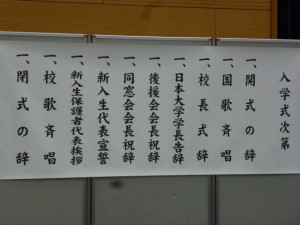 入学式次第
一、開式の辞
一、国歌斉唱
一、校長式辞
一、日本大学学長告辞
一、後援会会長祝辞
一、同窓会会長祝辞
一、新入生代表宣誓
一、新入生保護者代表挨拶
一、校歌斉唱
一、閉式の辞